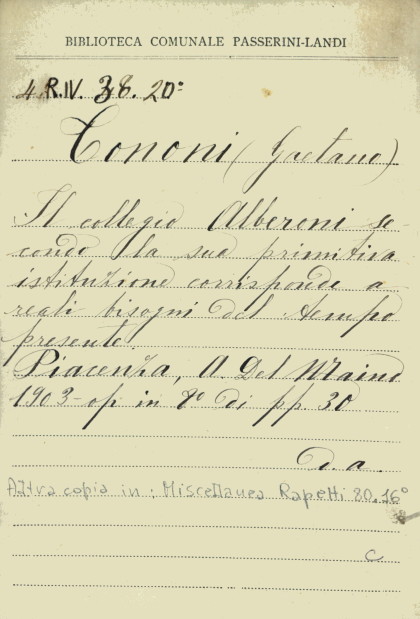 BIBLIOTECA COMUNALE PASSERINI-LANDI
4.R.IV. 38. 20°
Tononi (Gaetano)
Il collegio Alberoni se
condo la sua primitiva
istituzione corrisponde a
reali bisogni del tempo
presente.
Piacenza, A. Del Maino
1903 - op in 8° di pp 30
d. a.
Altra copia in: Miscellanea Rapetti 80.16°
C